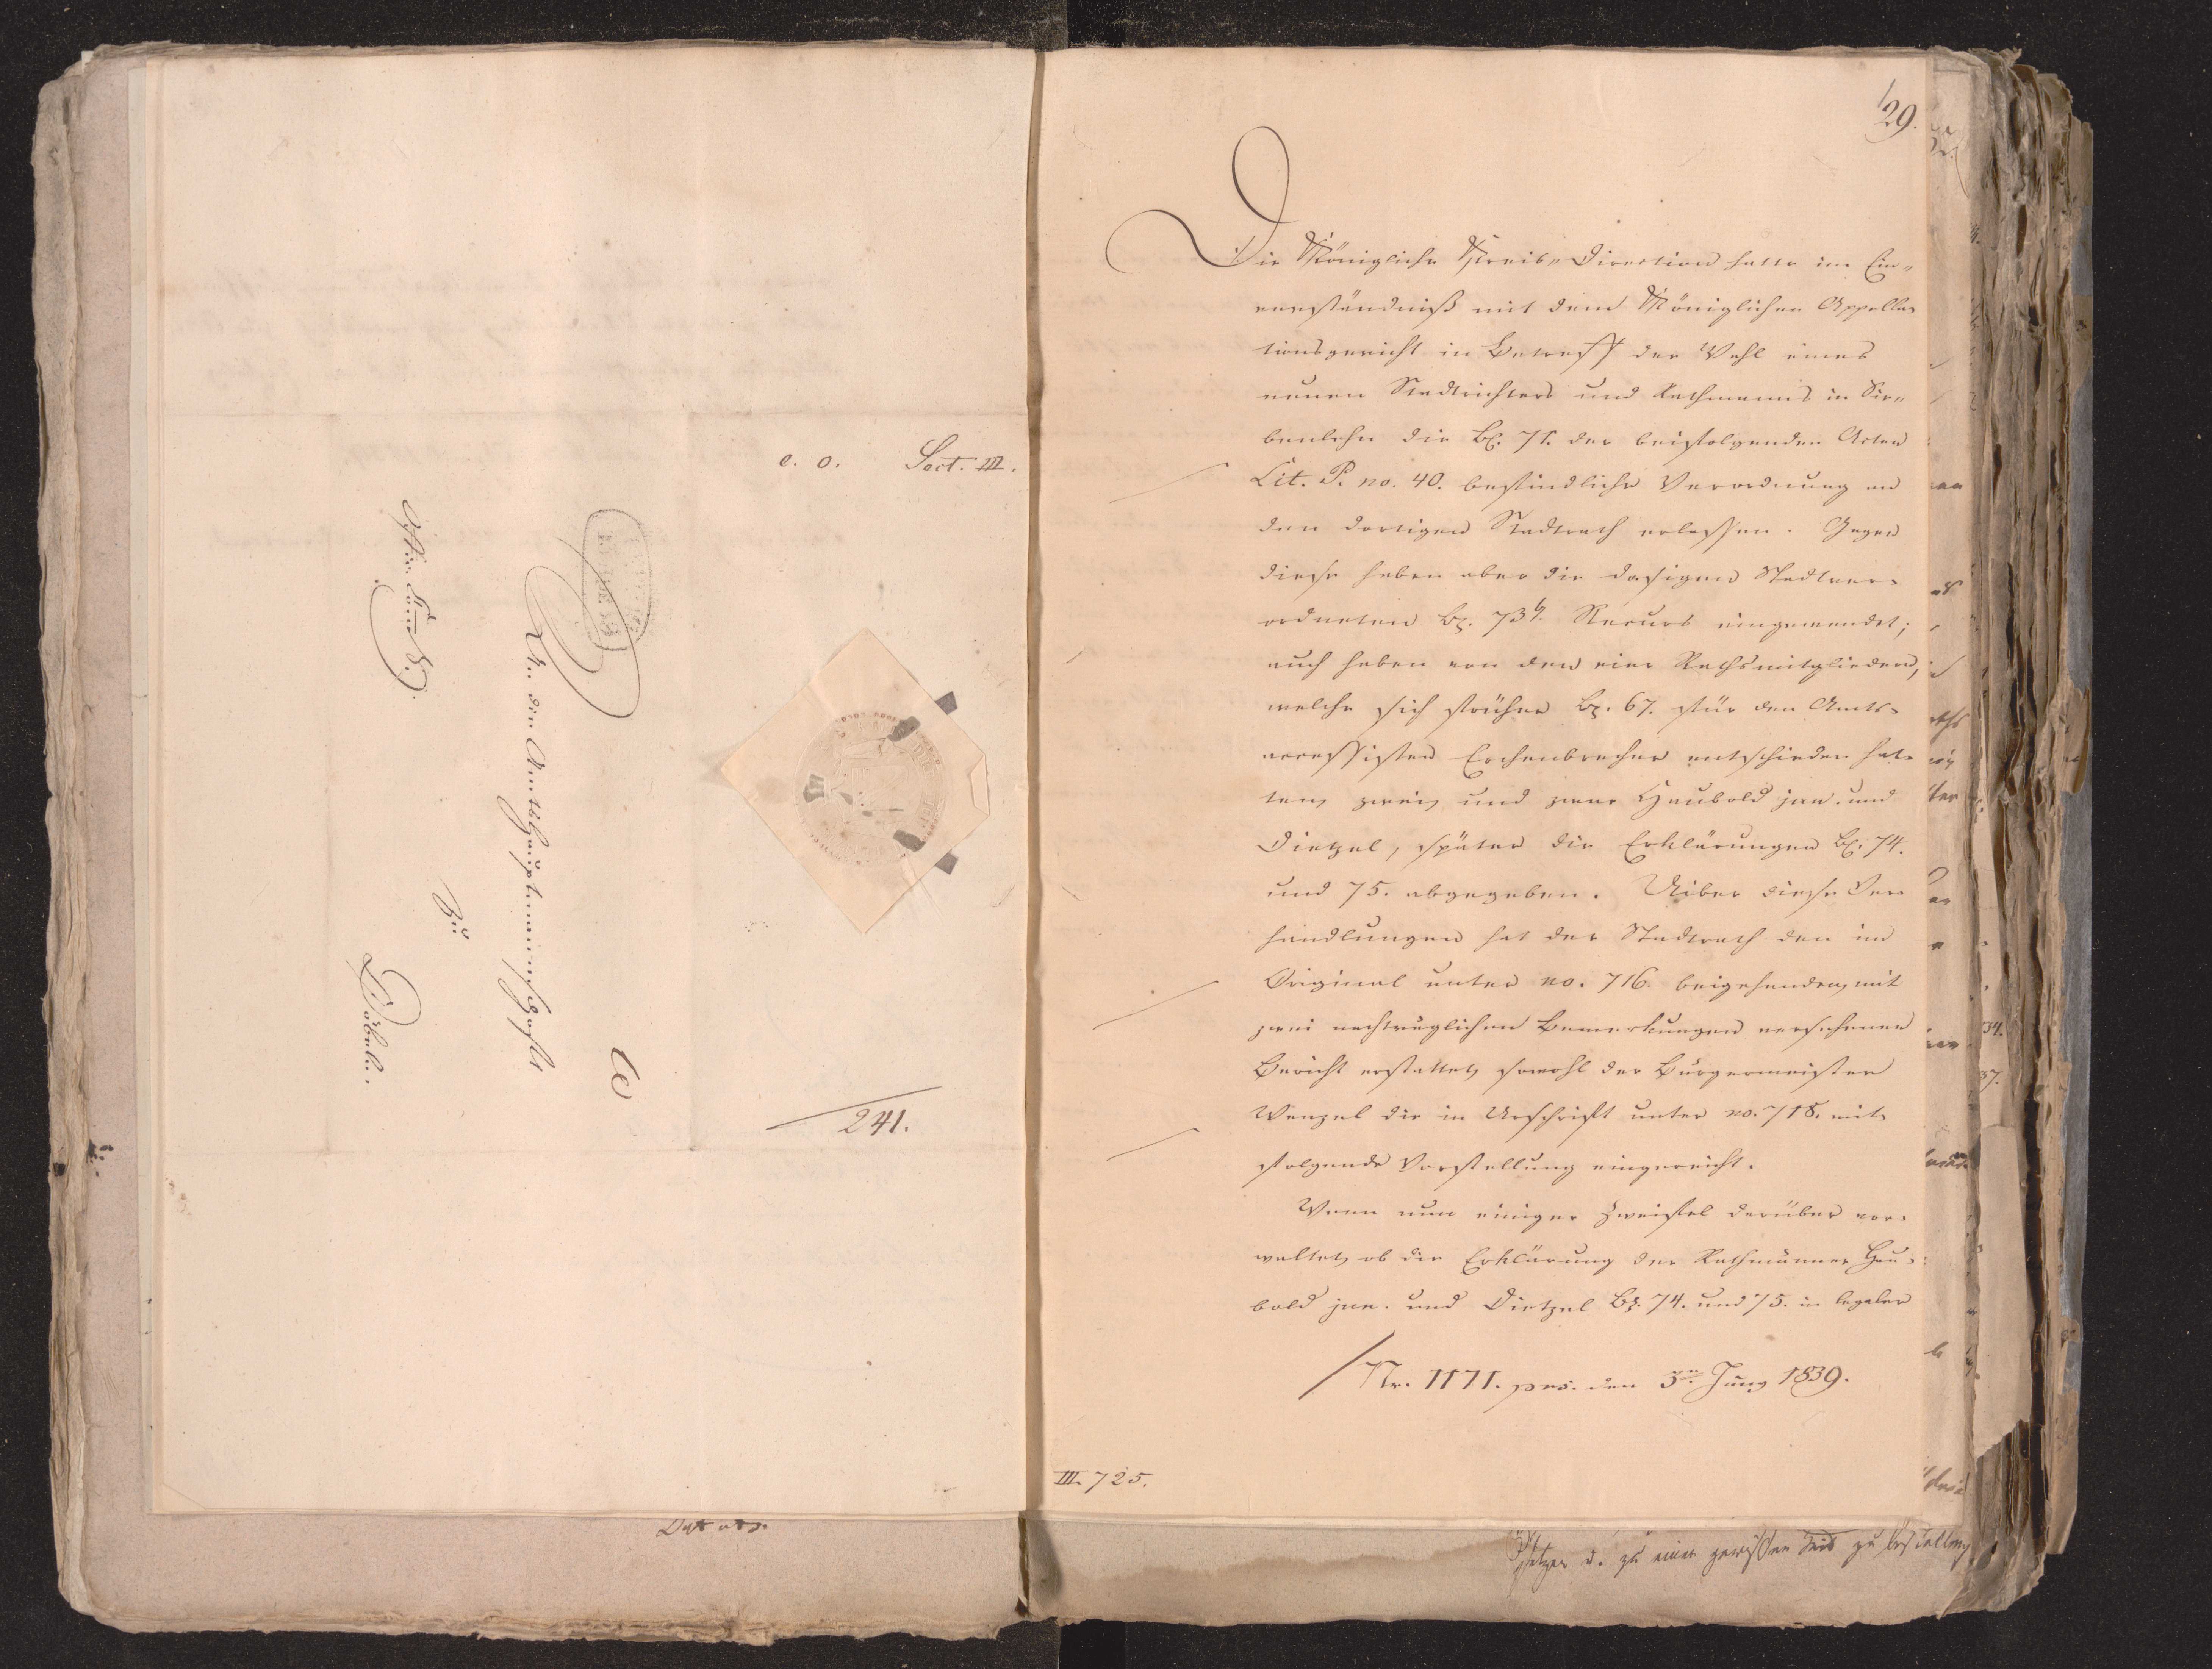 e. o. Sect. III.
An die Amtshauptmannschaft
zu
Döbeln.
241.
29.
Die Königliche Kreis-Direction hatte im Ein-
verständniß mit dem Königlichen Appella-
tionsgericht in Betreff der Wahl eines
neuen Stadtrichters und Rathmanns in Sie-
benlehn die Bl. 71. der beifolgenden Acten
Lit. P. no. 40. befindliche Verordnung an
den dortigen Stadtrath erlassen. Gegen
diese haben aber die dasigen Stadtver-
ordneten Bl. 73b. Recurs eingewendet;
auch haben von den vier Rathsmitgliedern,
welche sich früher Bl. 67. für den Amts-
accessisten Erchenbrecher entschieden hat-
ten, zwei, und zwar Haubold jun. und
Dietzel, später die Erklärungen Bl. 74.
und 75. abgegeben. Uiber diese Ver-
handlungen hat der Stadtrath den im
Original unter no. 716. beigehenden, mit
zwei nachträglichen Bemerkungen versehenen
Bericht erstattet, sowohl der Bürgermeister
Wenzel die in Urschrift unter no. 718. mit-
folgende Vorstellung eingereicht.
Wenn nun einiger Zweifel darüber vor-
waltet, ob die Erklärung der Rathmänner Hau-
bold jun. und Dietzel Bl. 74. und 75. in legaler
Nr. 1171. prs. den 5n. Juny 1839.
III. 725.
zu einer gewissen Zeit zu